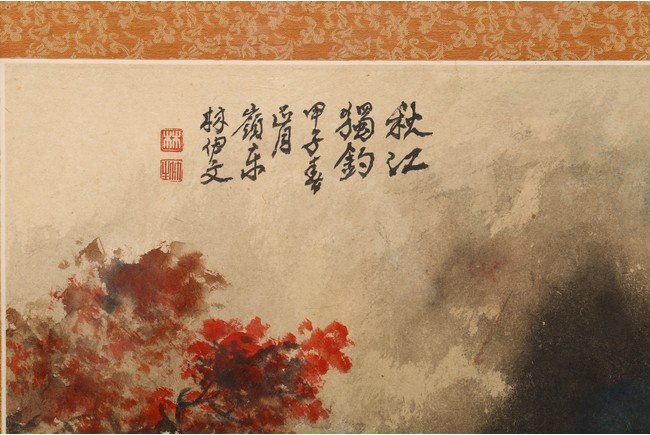 秋江
獨釣
甲子春
正月
嶺東
林伊文
林